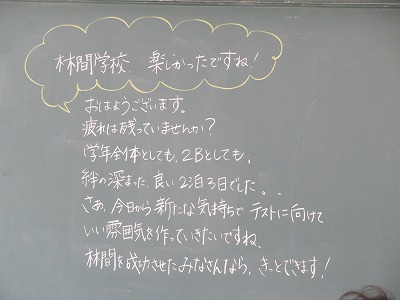 林間学校、楽しかったですね！
おはようございます。
疲れは残っていませんか？
学年全体としても、2Bとしても、
絆の深まった、良い2泊3日でした。。
さあ、今日から新たな気持ちでテストに向けて
いい雰囲気を作っていきたいですね、
林間を成功させたみなさんなら、きっとできます！